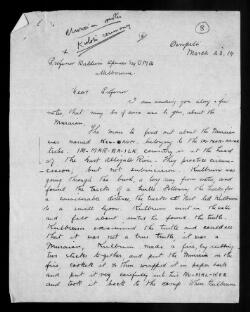 8
Oenpelli
March 23. 14
Professor Baldwin Spencer
Melbourne
Dear Professor
I am sending you along a few
notes, that may be of some use to you about the
Muraian
The man to find out about the Muraian
was named belonging to the
tribe, country is at the head
of the East Alligator River. They practice circum-
cision, but not subincision. Kulbrum was
going through the bush, a long way from water and
found the tracks of a turtle. Followed the tracks for
a considerable distance, the tracks at last led Kulbrum
to a small lagoon. Kulbrum went in the water
and felt about until he found the turtle.
Kulbrum examined the turtle and could see
that it was not a true turtle it was a
Muraian, Kulbrum made a fire, by rubbing
two sticks together, and put the Muraian in the
fire, cooked it &amp; then wrapped it in paper bark
and put it very carefully into his
and took it back to the camp When Kulbrum